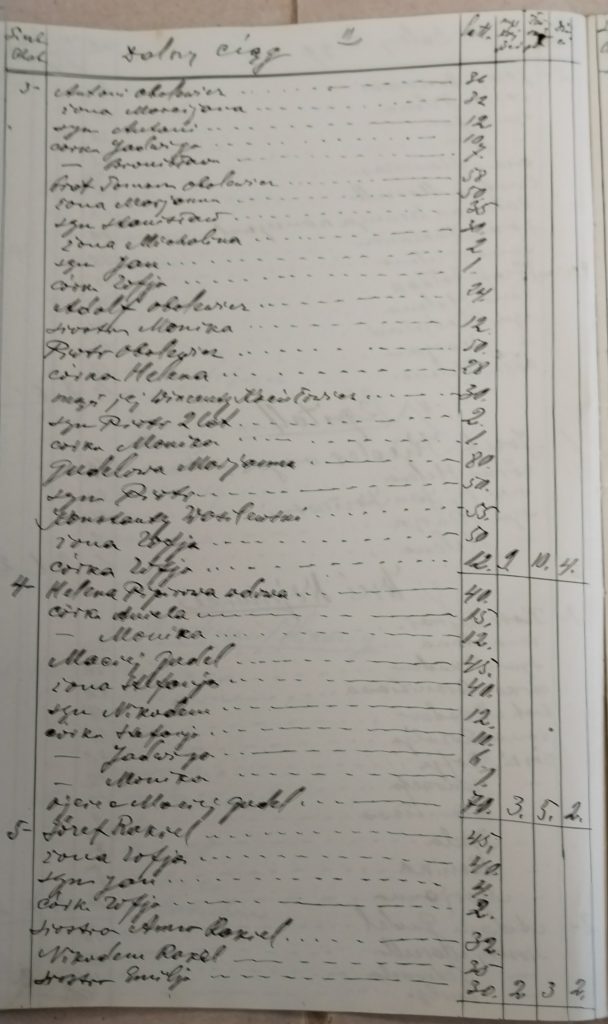 Dalszy ciąg
lat.
3- Antoni Obolewicz 36
żona Marcijana 32
syn Antoni 12
córka Jadwiga 10
— Bronisława
brat Tomasz Obolewicz 52
żona Marjanna 50
syn Stanisław
żona Michalina
syn Jan 2
córka Zofja 1.
Adolf Obolewicz 24
siostra Monika 12.
Piotr Obolewicz 50.
córka Helena 28
mąż jej Wincenty 30.
syn Piotr 2 lat 2.
córka Monika 1.
Gudelowa Marjanna 80.
syn Piotr 50.
Konstanty Wasilewski 55.
żona Zofja 50
córka Zofja 12. 9 10. 4.
4- Helena wdowa 40.
córka Aniela 15.
— Monika 12.
Maciej Gudel 45.
żona Stefanja 40.
syn Nikodem 12.
córka Stefanja 10.
— Jadwiga 6.
— Monika 1.
ojciec Maciej Gudel 70. 3. 5. 2.
5- Józef Rakiel 45.
żona Zofja 40.
syn Jan 4.
córka Zofja 2.
siostra Anna Rakiel 32
Nikodem Rakel 35
siostra Emilja 30. 2 3 2.